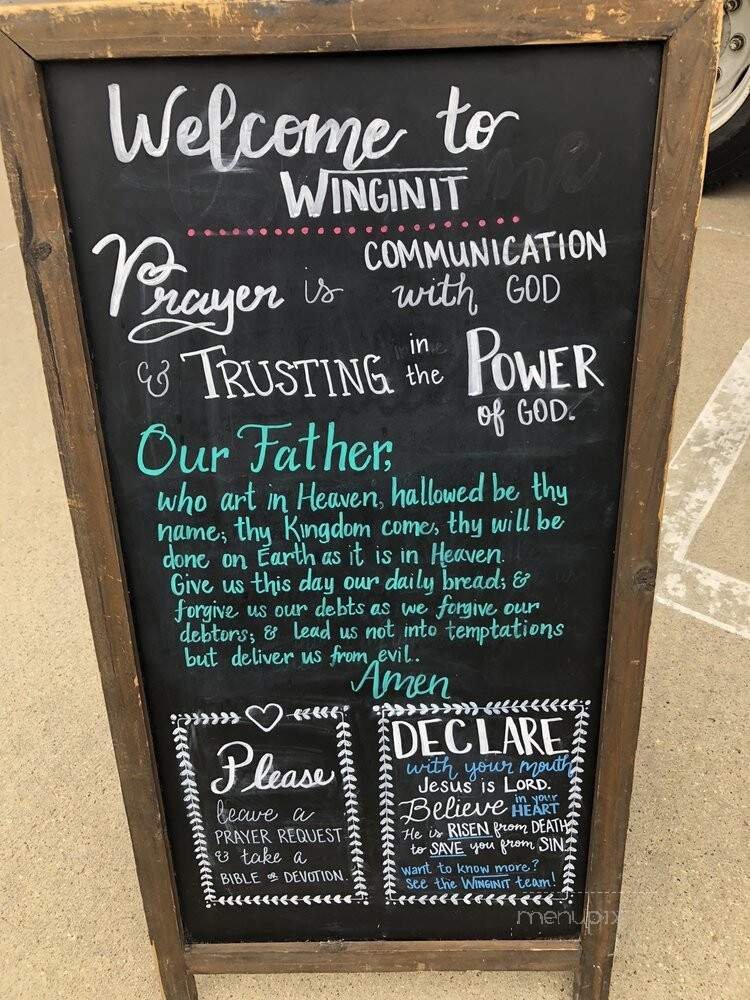 Welcome to
WINGINIT
Prayer is COMMUNICATION with GOD
& TRUSTING in the POWER of GOD.
Our Father,
who art in Heaven, hallowed be thy
name; thy Kingdom come, thy will be
done on Earth as it is in Heaven.
Give us this day our daily bread; &
forgive us our debts as we forgive our
debtors; & lead us not into temptations
but deliver us from evil.
Amen
Please
leave a
PRAYER REQUEST
& take a
BIBLE or DEVOTION.
DECLARE
with your mouth
JESUS is LORD.
Believe in your HEART
He is RISEN from DEATH
to SAVE you from SIN.
want to know more?
See the WINGINIT team!
menupix